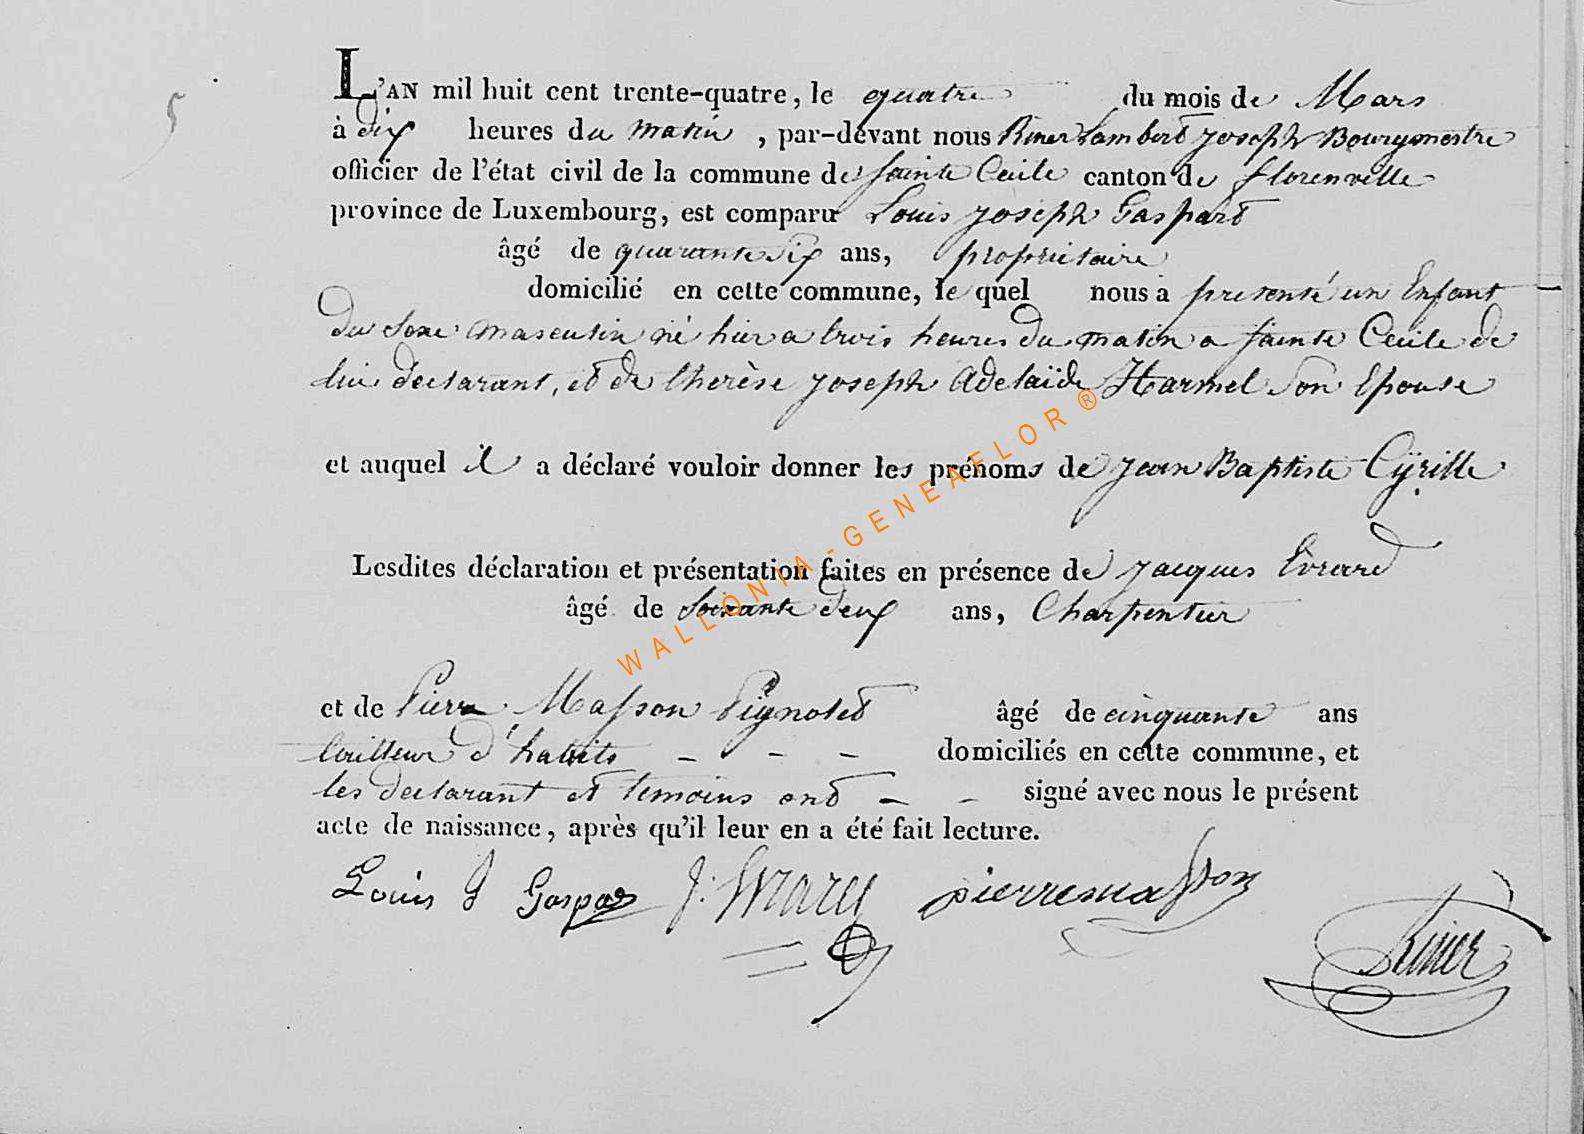 5
L'AN mil huit cent trente-quatre, le quatre du mois de Mars
à dix heures du matin, par-devant nous Riner Lambert Joseph Bourgmestre
officier de l'état civil de la commune de Sainte Cecile canton de florenville
province de Luxembourg, est comparu Louis Joseph Gaspard
âgé de quarante Six ans, proprietaire
domicilié en cette commune, le quel nous a presenté un Enfant
du Sexe masculin né hier a trois heures du matin a Sainte Cecile de
lui declarant, et de therèse Joseph Adelaïde Harmel Son Epouse
et auquel il a déclaré vouloir donner les prénoms de Jean Baptiste Cÿrille
Lesdites déclaration et présentation faites en présence de Jacques Evrard
âgé de Soixante deux ans, Charpentier
et de Pierre Masson Pignolet âgé de cinquante ans
tailleur d'habits - - - domiciliés en cette commune, et
les declarant et temoins ont - - signé avec nous le présent
acte de naissance, après qu'il leur en a été fait lecture.
Louis J Gaspar J: Evrard pierre masson
Riner
WALLONIA-GENEAFLOR®